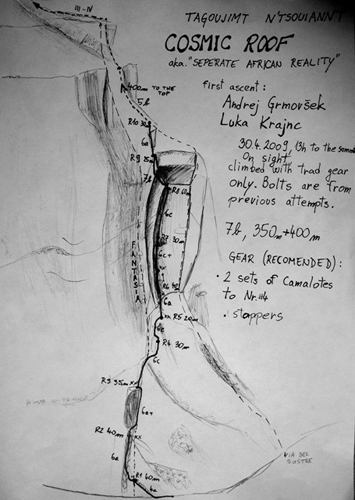 TAGOUJIMT N'TSOUIANNT
COSMIC ROOF
aka. "SEPERATE AFRICAN REALITY"
first ascent:
Andrej Grmovšek
Luka Krajnc
30.4.2009, 13h to the
On sight,
climbed with trad gear
only. Bolts are from
previous attempts.
7b, 350m+400m
GEAR (RECOMENDED):
• 2 sets of Camalotes
to Nr. 4
• stoppers
III-IV
400m TO THE
TOP
5b
R10
6a
R9 25m
7b
R8
6c
R7 30m
6c+
R6
6a
R5 20m
R4 30m
6c
R3 35m
6a+
R2 40m
6a
R1 60m
6a
FANTASIA
VIA DEL
SASTRE